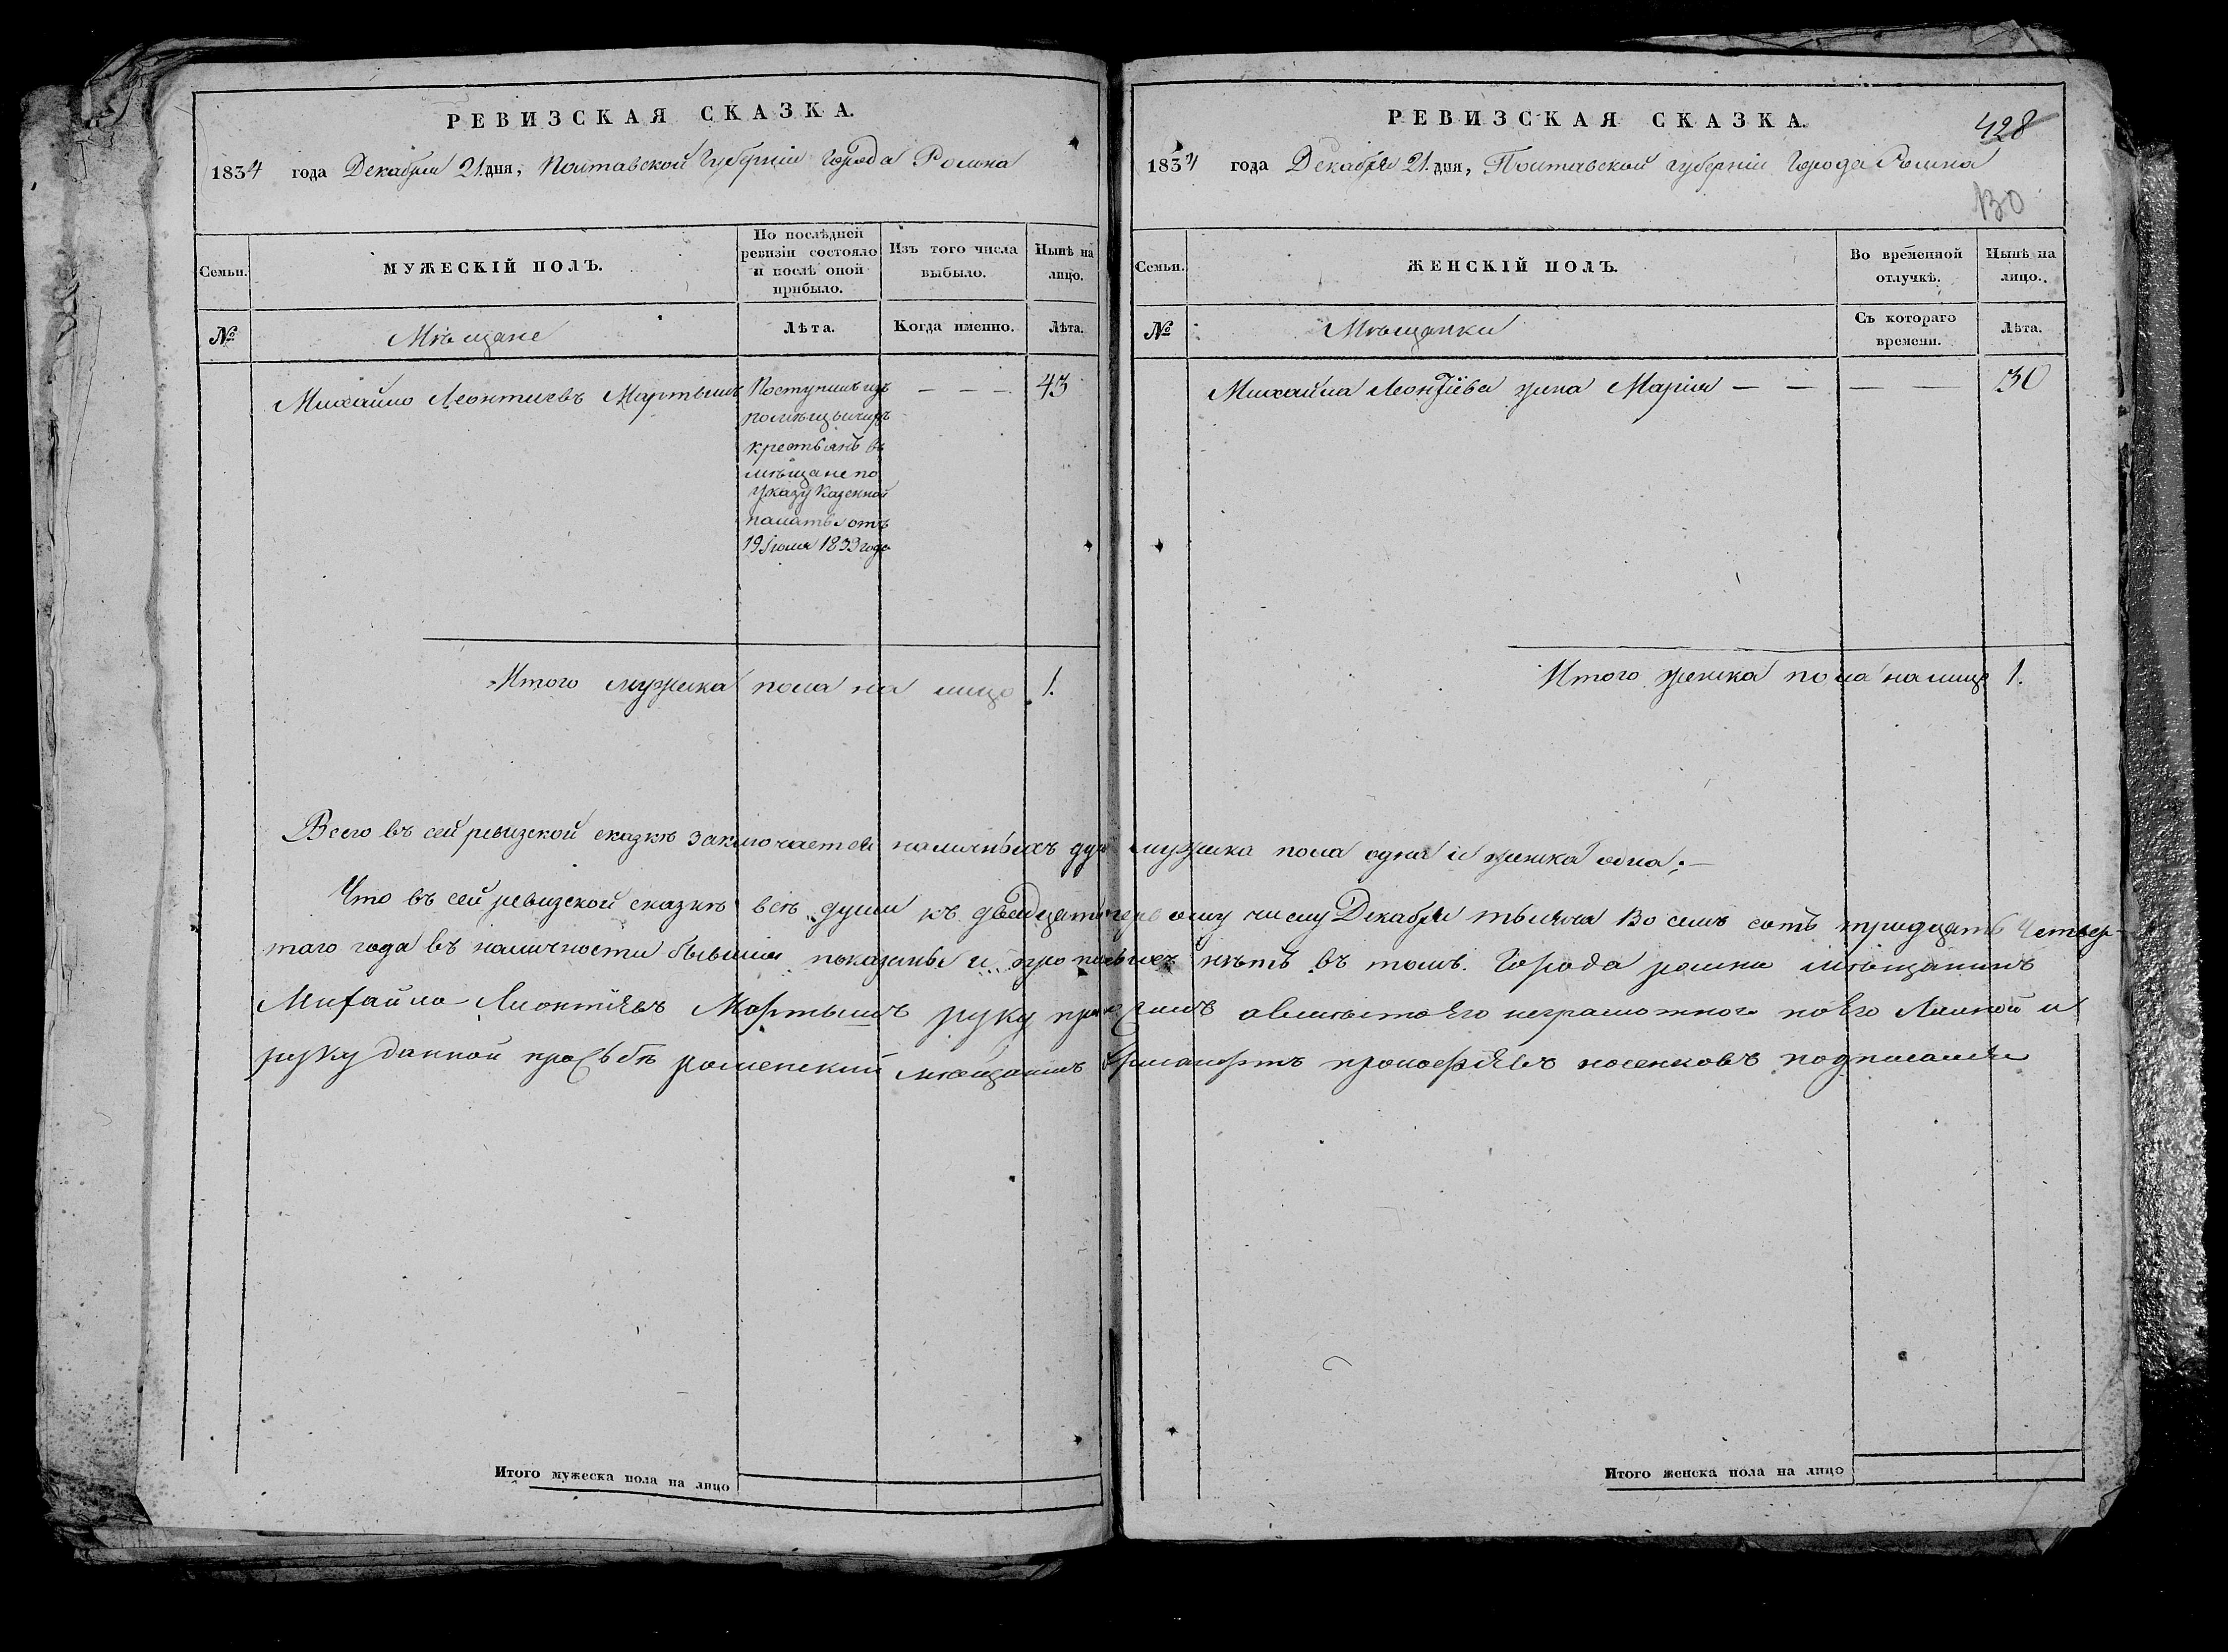 РЕВИЗСКАЯ СКАЗКА.
1834 года Декабря 21 дня, Полтавской Губерніи Города Ромна
Семьи.
МУЖЕСКІЙ ПОЛЪ.
По послѣдней ревизіи состояло и послѣ оной прибыло.
Изъ того числа выбыло.
Нынѣ на лицо.
№
Мѣщане
Лѣта.
Когда именно.
Лѣта.
Михайло Леонтиевъ Мартыш
Поступилъ изъ
помѣщичихъ
крестьянъ въ
мѣщане по
указу Казенной
палаты отъ
19 Іюля 1833 года
— — —
43
Итого мужеска пола на лицо 1.
РЕВИЗСКАЯ СКАЗКА.
428
1834 года Декабря 21 дня, Полтавской губерніи Города Ромна
130
Семьи.
ЖЕНСКІЙ ПОЛЪ.
Во временной отлучкѣ.
Нынѣ на лицо.
№
Мѣщанки
Съ котораго времени.
Лѣта.
Михайла Леонтіева жина Марія — — — — 30
Итого женска пола на лице 1.
Всего въ сей ревизской сказкѣ заключается наличныхъ душ мужеска пола одна и женска одна;—
Что въ сей ревизской сказкѣ всѣ души къ двадцать первому числу Декабря тысяча Восемъ сотъ тридцать Четвер-
таго года въ наличности бывшия показаны и прописныхъ нѣтъ въ томъ Города ромна мѣщанинъ
Михайло Леонтіевъ Мартышъ руку приложилъ авместо Его неграмотного по Его Личной и
руку данной прозбѣ роменский мѣщанинъ прокофіевъ носенковъ подписался
Итого мужеска пола на лицо
Итого женска пола на лицо